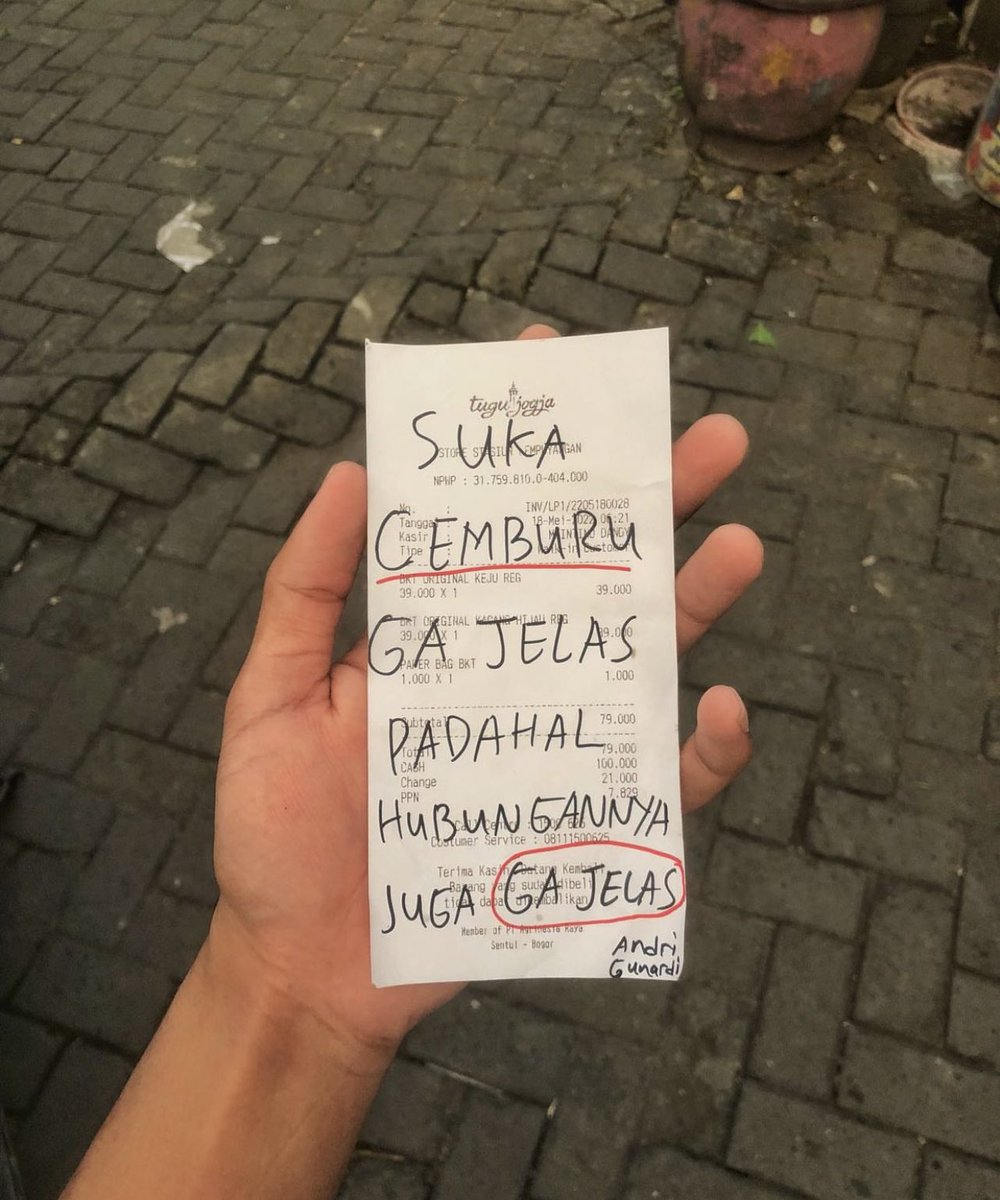 tugu jogja
SUKA
NPWP : 31.759.810.0-404.000
No. : INV/LP1/2205180028
CEMBURU
BKT ORIGINAL KEJU REG
39.000 X 1 39.000
BKT ORIGINAL KACANG HIJAU REG
39.000 X 1 39.000
GA JELAS
PAPER BAG BKT
1.000 X 1 1.000
Subtotal 79.000
PADAHAL
Total 79.000
CASH 100.000
Change 21.000
PPN 7.829
HUBUNGANNYA
Customer Service : 08111500625
Terima Kasih Datang Kembali
Barang yang sudah dibeli
tidak dapat dikembalikan
JUGA GA JELAS
Member of PT Agrinesia Raya
Sentul - Bogor
Andri
Gunardi